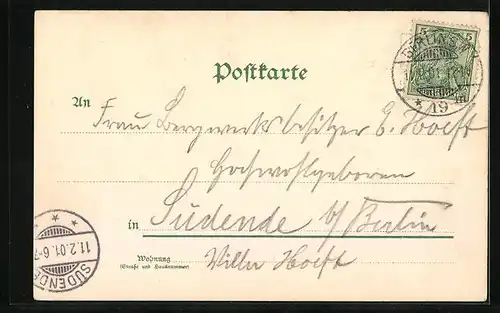 5 5
BERLIN S.W.
* 19 m
Postkarte
An
Frau Bergwerksbesitzer E. Hoeft
Hochwohlgeboren
in Südende b/Berlin
Wohnung
(Straße und Hausnummer)
Villa Hoeft
11.2.01. 6-7
SÜDENDE